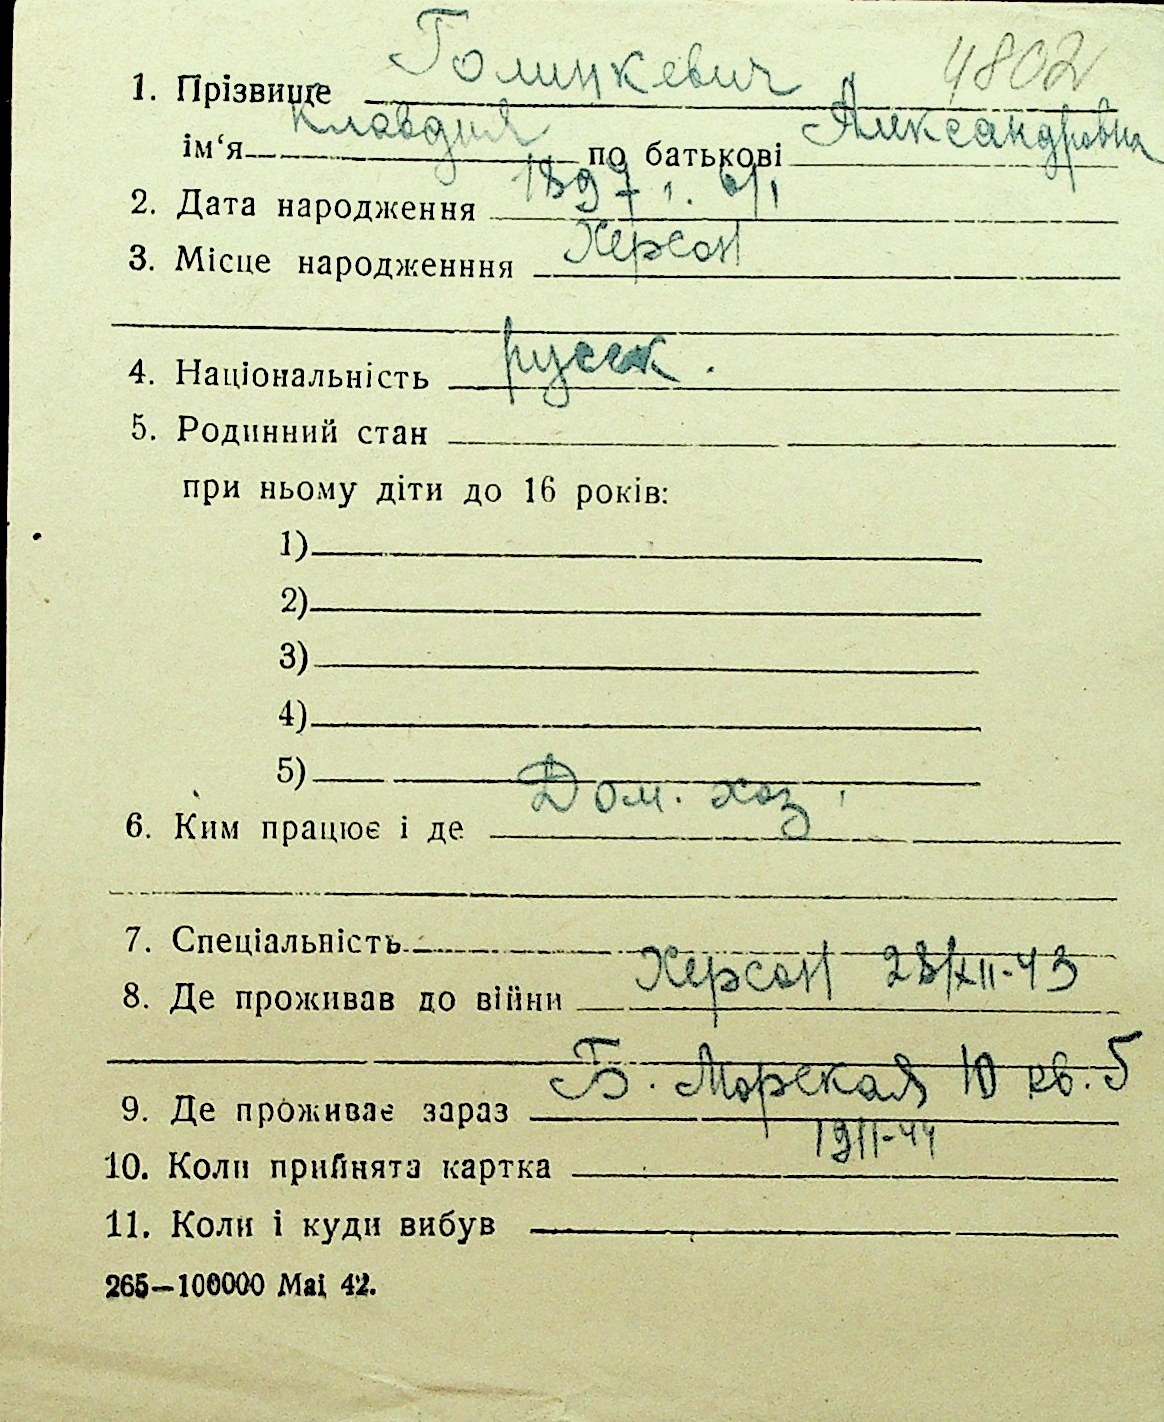 4802
1. Прізвище Голицкевич
ім‘я Клавдия по батькові Александровна
2. Дата народження 1897 6/I
3. Місце народженння Херсон
4. Національність русск.
5. Родинний стан
при ньому діти до 16 років:
1)
2)
3)
4)
5)
6. Ким працює і де Дом. хоз
7. Спеціальність
8. Де проживав до війни Херсон 28/XII-43
9. Де проживає зараз Б. Морская 10 кв. 5
10. Коли прийнята картка
11. Коли і куди вибув
265—100000 Mai 42.